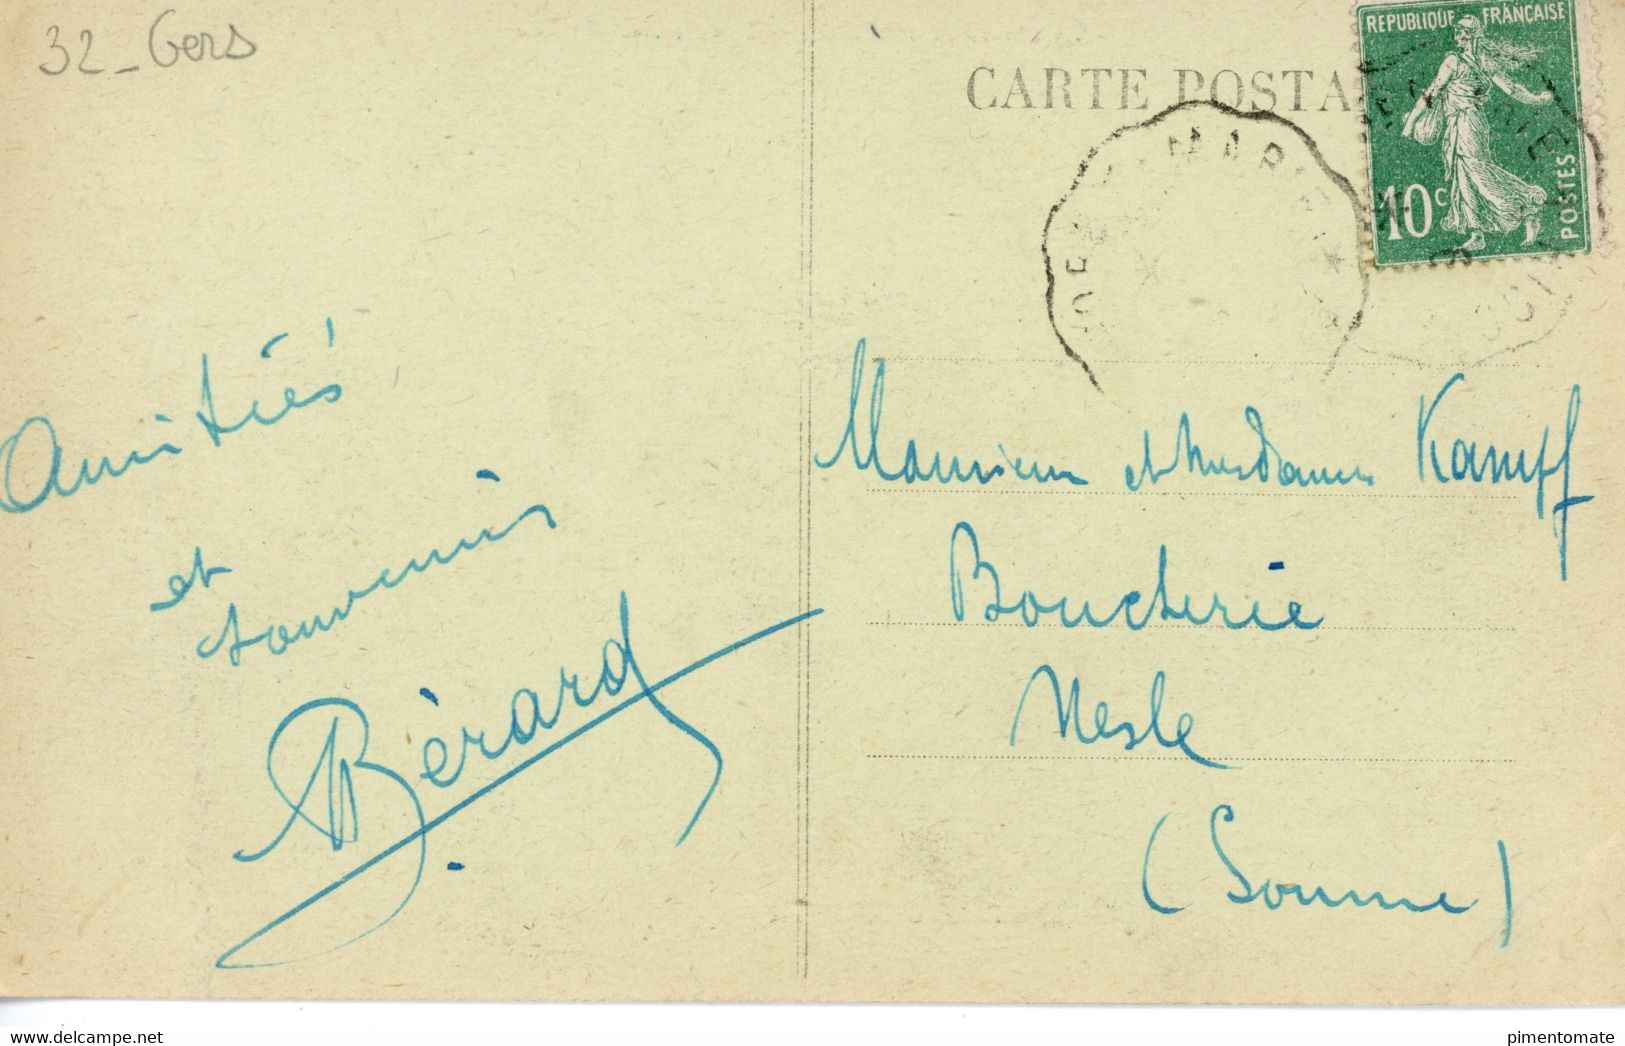 32_Gers
CARTE POSTA
REPUBLIQUE FRANÇAISE
10c
POSTES
Amitiés
et
souvenirs
Bérard
Monsieur et Mesdames Kampf
Boucherie
Nesle
(Somme)
www.delcampe.net
pimentomate